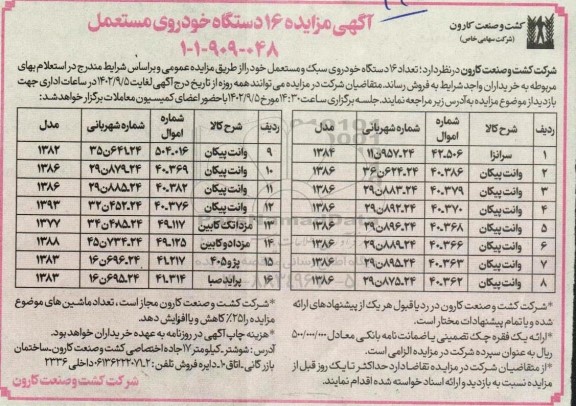 کشت و صنعت کارون
(شرکت سهامی خاص)
آگهی مزایده ۱۶ دستگاه خودروی مستعمل
۱-۱-۹۰۹-۰۴۸
شرکت کشت و صنعت کارون در نظر دارد: تعداد ۱۶ دستگاه خودروی سبک و مستعمل خود را از طریق مزایده عمومی و براساس شرایط مندرج در استعلام بهای
مربوطه به خریداران واجد شرایط به فروش رساند. متقاضیان شرکت در مزایده می توانند همه روزه از تاریخ درج آگهی لغایت ۱۴۰۲/۹/۵ در ساعات اداری جهت
بازدید از موضوع مزایده به آدرس زیر مراجعه نمایند. جلسه برگزاری ساعت ۱۴:۳۰ مورخ ۱۴۰۲/۹/۵ با حضور اعضای کمیسیون معاملات برگزار خواهد شد:
ردیف شرح کالا شماره اموال شماره شهربانی مدل
۱ سرانزا ۴۲.۵۰۶ ۹۵۷.۲۴ن۱۱ ۱۳۸۴
۲ وانت پیکان ۴۰.۳۸۶ ۶۲۴.۲۴ن۳۶ ۱۳۸۶
۳ وانت پیکان ۴۰.۳۷۹ ۸۸۳.۲۴ن۲۹ ۱۳۸۶
۴ وانت پیکان ۴۰.۳۷۰ ۸۹۲.۲۴ن۲۹ ۱۳۸۶
۵ وانت پیکان ۴۰.۳۶۸ ۸۹۶.۲۴ن۲۹ ۱۳۸۶
۶ وانت پیکان ۴۰.۳۶۶ ۸۸۹.۲۴ن۲۹ ۱۳۸۶
۷ وانت پیکان ۴۰.۳۶۳ ۸۹۵.۲۴ن۲۹ ۱۳۸۶
۸ وانت پیکان ۴۰.۳۶۲ ۸۷۵.۲۴ن۲۹ ۱۳۸۶
ردیف شرح کالا شماره اموال شماره شهربانی مدل
۹ وانت پیکان ۵۰۴.۰۱۶ ۶۴۱.۲۴ن۳۵ ۱۳۸۲
۱۰ وانت پیکان ۴۰.۳۶۹ ۸۷۹.۲۴ن۲۹ ۱۳۸۶
۱۱ وانت پیکان ۴۰.۳۸۲ ۸۸۵.۲۴ن۲۹ ۱۳۸۶
۱۲ وانت پیکان ۴۰.۳۷۶ ۴۵۲.۲۴ن۳۲ ۱۳۹۳
۱۳ مزدا تک کابین ۴۹.۱۱۷ ۴۸۵.۲۴ن۳۴ ۱۳۷۷
۱۴ مزدا دو کابین ۴۹.۱۲۵ ۷۳۴.۲۴ن۴۵ ۱۳۸۸
۱۵ پژو ۴۰۵ ۴۱.۲۱۷ ۶۹۶.۲۴ن۱۶ ۱۳۸۳
۱۶ پراید صبا ۴۱.۳۱۴ ۶۹۵.۲۴ن۱۶ ۱۳۸۳
*شرکت کشت و صنعت کارون در رد یا قبول هر یک از پیشنهادهای ارائه
شده و یا تمام پیشنهادات مختار است.
*ارائه یک فقره چک تضمینی یا ضمانت نامه بانکی معادل ۵۰۰/۰۰۰/۰۰۰
ریال به عنوان سپرده شرکت در مزایده الزامی است.
*از متقاضیان شرکت در مزایده تقاضا دارد حداکثر تا یک روز قبل از
مزایده نسبت به بازدید و ارائه اسناد خواسته شده اقدام نمایند.
*شرکت کشت و صنعت کارون مجاز است، تعداد ماشین های موضوع
مزایده را ۲۵٪ کاهش و یا افزایش دهد.
*هزینه چاپ آگهی در روزنامه به عهده خریداران خواهد بود.
آدرس: شوشتر-کیلومتر ۱۷ جاده اختصاصی کشت و صنعت کارون-ساختمان
بازرگانی-اتاق ۱-دایره فروش تلفن: ۲-۶۱۳۶۲۲۲۰۷۱ داخلی ۲۳۳۶
شرکت کشت و صنعت کارون